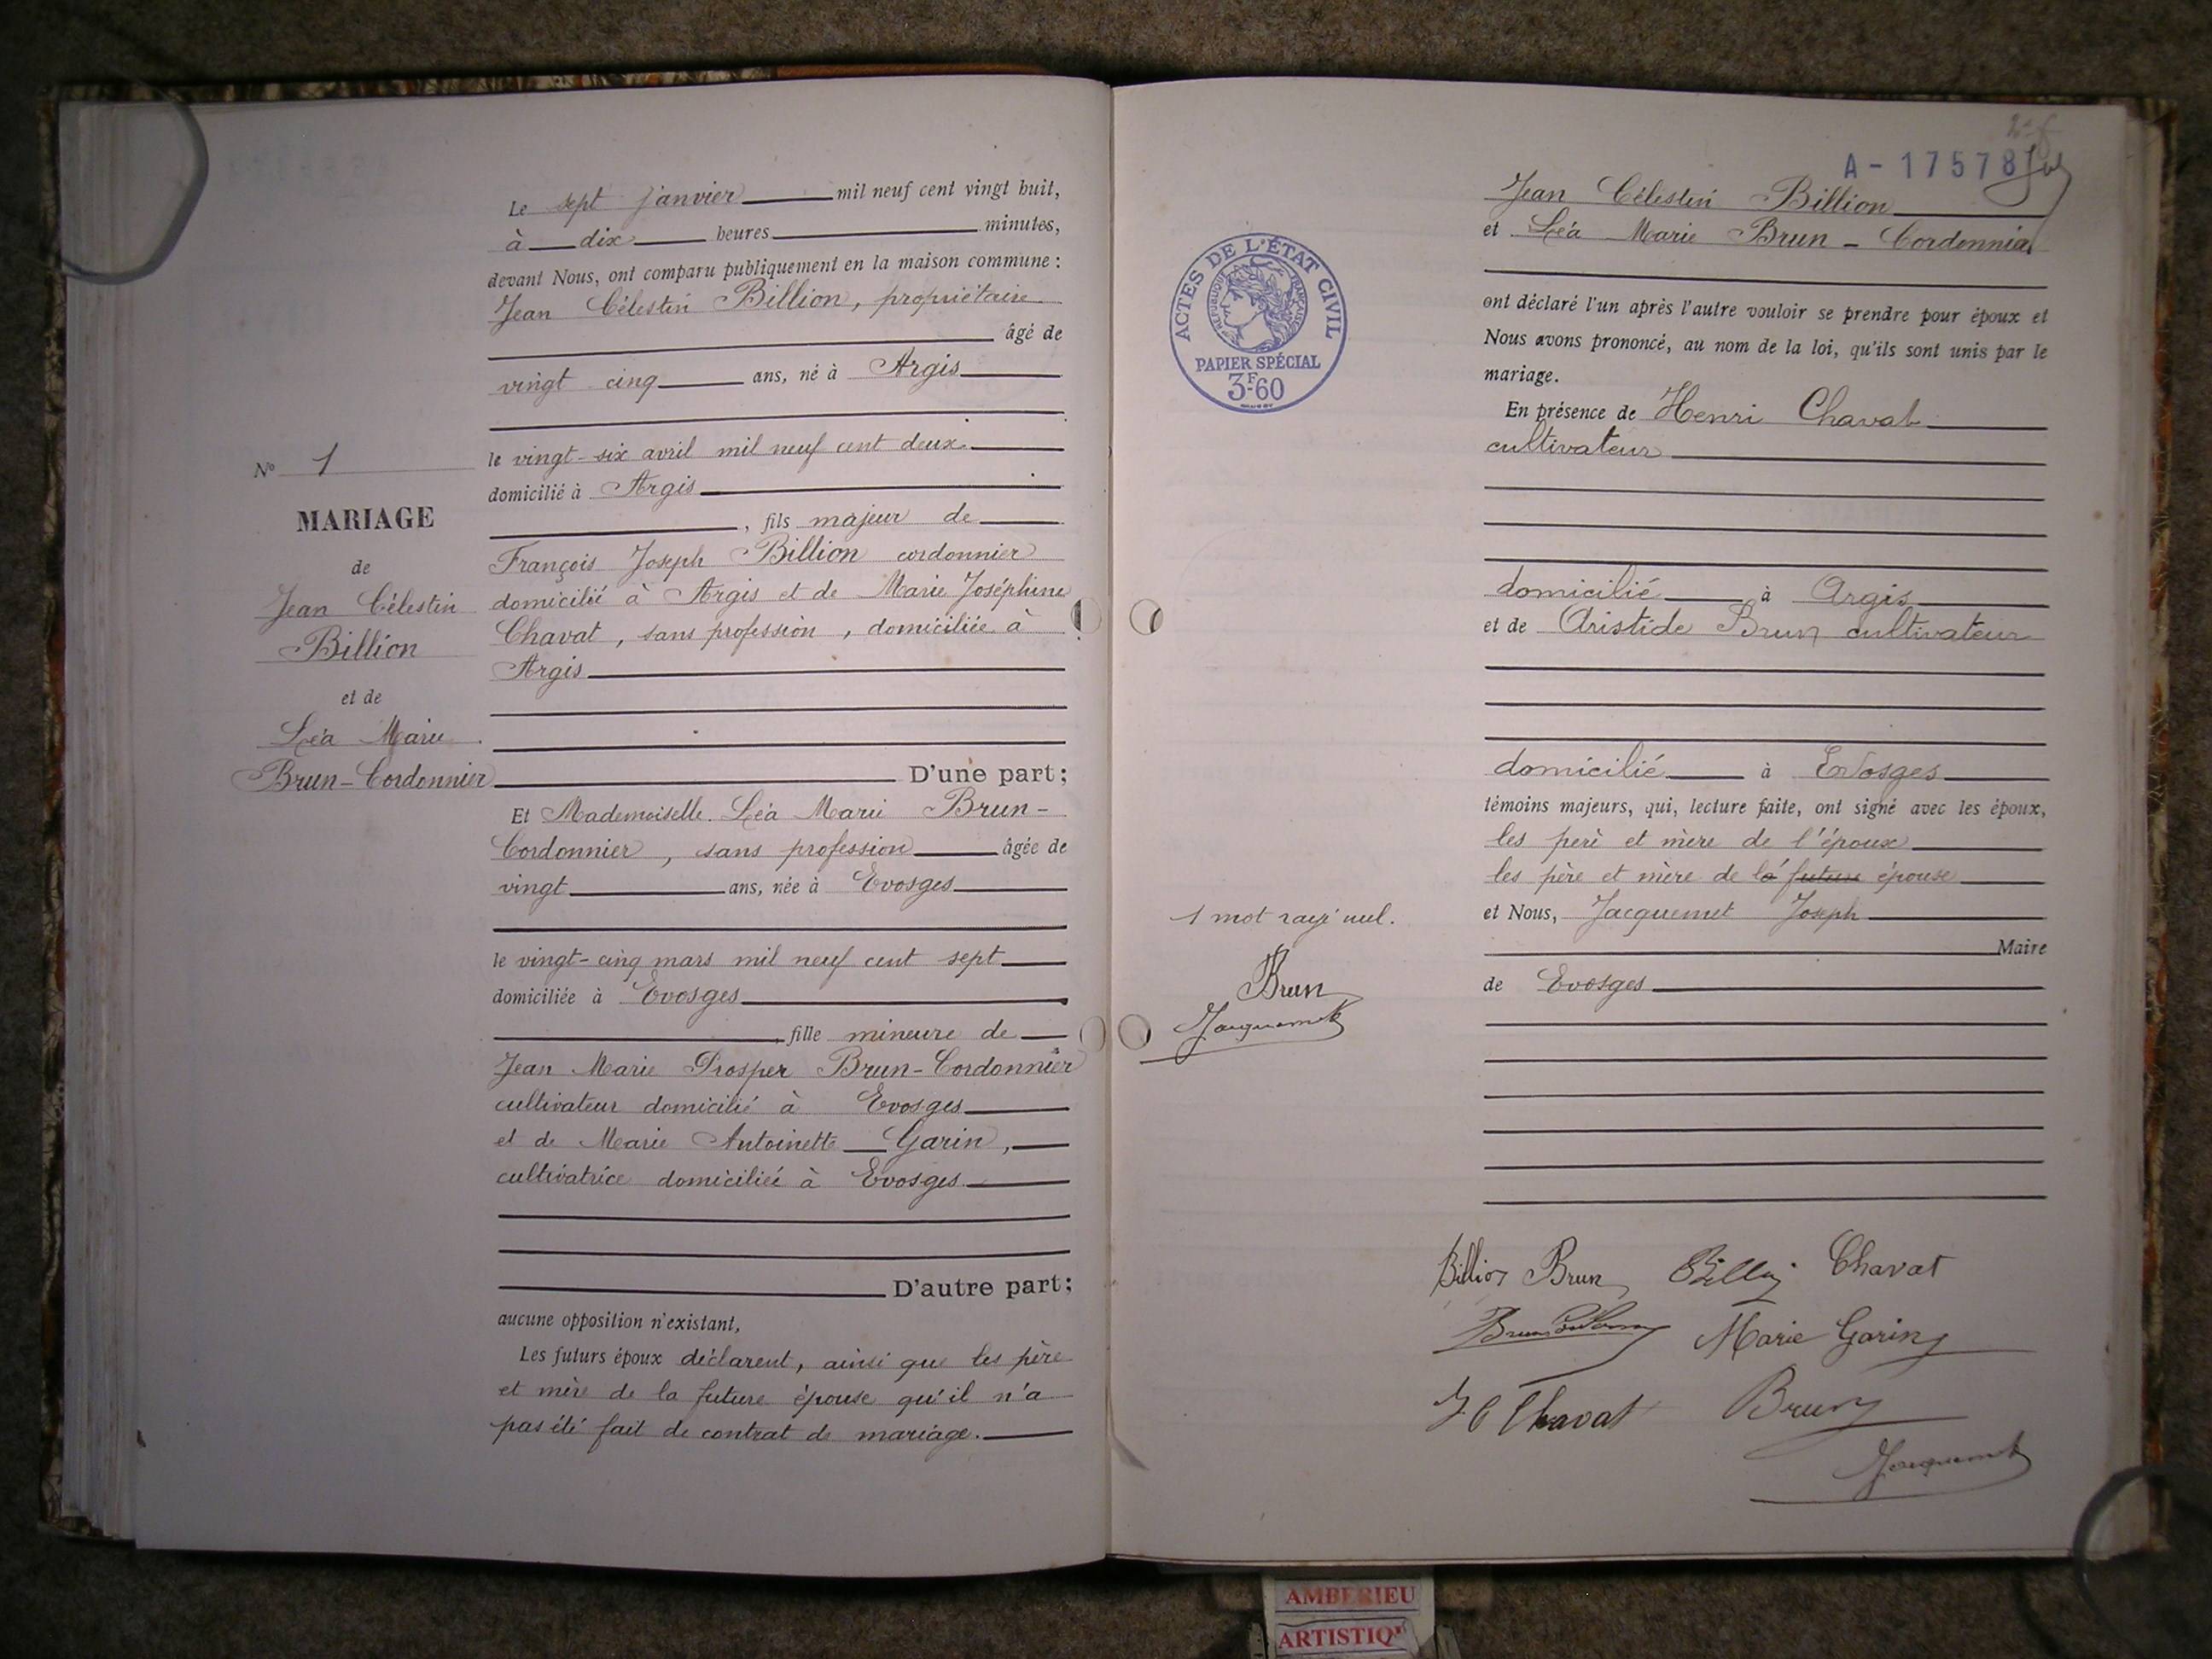 Le sept janvier mil neuf cent vingt huit,
à dix heures minutes,
devant Nous, ont comparu publiquement en la maison commune :
Jean Célestin Billion, propriétaire
âgé de
vingt cinq ans, né à Argis
le vingt-six avril mil neuf cent deux
domicilié à Argis
, fils majeur de
François Joseph Billion cordonnier
domicilié à Argis et de Marie Joséphine
Chavat, sans profession, domiciliée à
Argis
D'une part ;
N° 1
MARIAGE
de
Jean Célestin
Billion
et de
Léa Marie
Brun-Cordonnier
Et Mademoiselle Léa Marie Brun-
Cordonnier, sans profession âgée de
vingt ans, née à Evosges
le vingt-cinq mars mil neuf cent sept
domiciliée à Evosges
, fille mineure de
Jean Marie Prosper Brun-Cordonnier
cultivateur domicilié à Evosges
et de Marie Antoinette Garin,
cultivatrice domiciliée à Evosges
D'autre part ;
aucune opposition n'existant,
Les futurs époux déclarent, ainsi que les père
et mère de la future épouse qu'il n'a
pas été fait de contrat de mariage.
A - 17578
ACTES DE L'ÉTAT CIVIL
RÉPUBLIQUE FRANÇAISE
PAPIER SPÉCIAL
3F.60
Jean Célestin Billion
et Léa Marie Brun-Cordonnier
ont déclaré l'un après l'autre vouloir se prendre pour époux et
Nous avons prononcé, au nom de la loi, qu'ils sont unis par le
mariage.
En présence de Henri Chavat
cultivateur
domicilié à Argis
et de Aristide Brun cultivateur
domicilié à Evosges
témoins majeurs, qui, lecture faite, ont signé avec les époux,
les père et mère de l'époux
les père et mère de la future épouse
et Nous, Jacquemet Joseph
Maire
de Evosges
1 mot rayé nul.
Brun
Jacquemet
Billion Brun Billion Chavat
Brun Cordonnier Marie Garin
H Chavat Brun
Jacquemet
AMBERIEU
ARTISTIQ